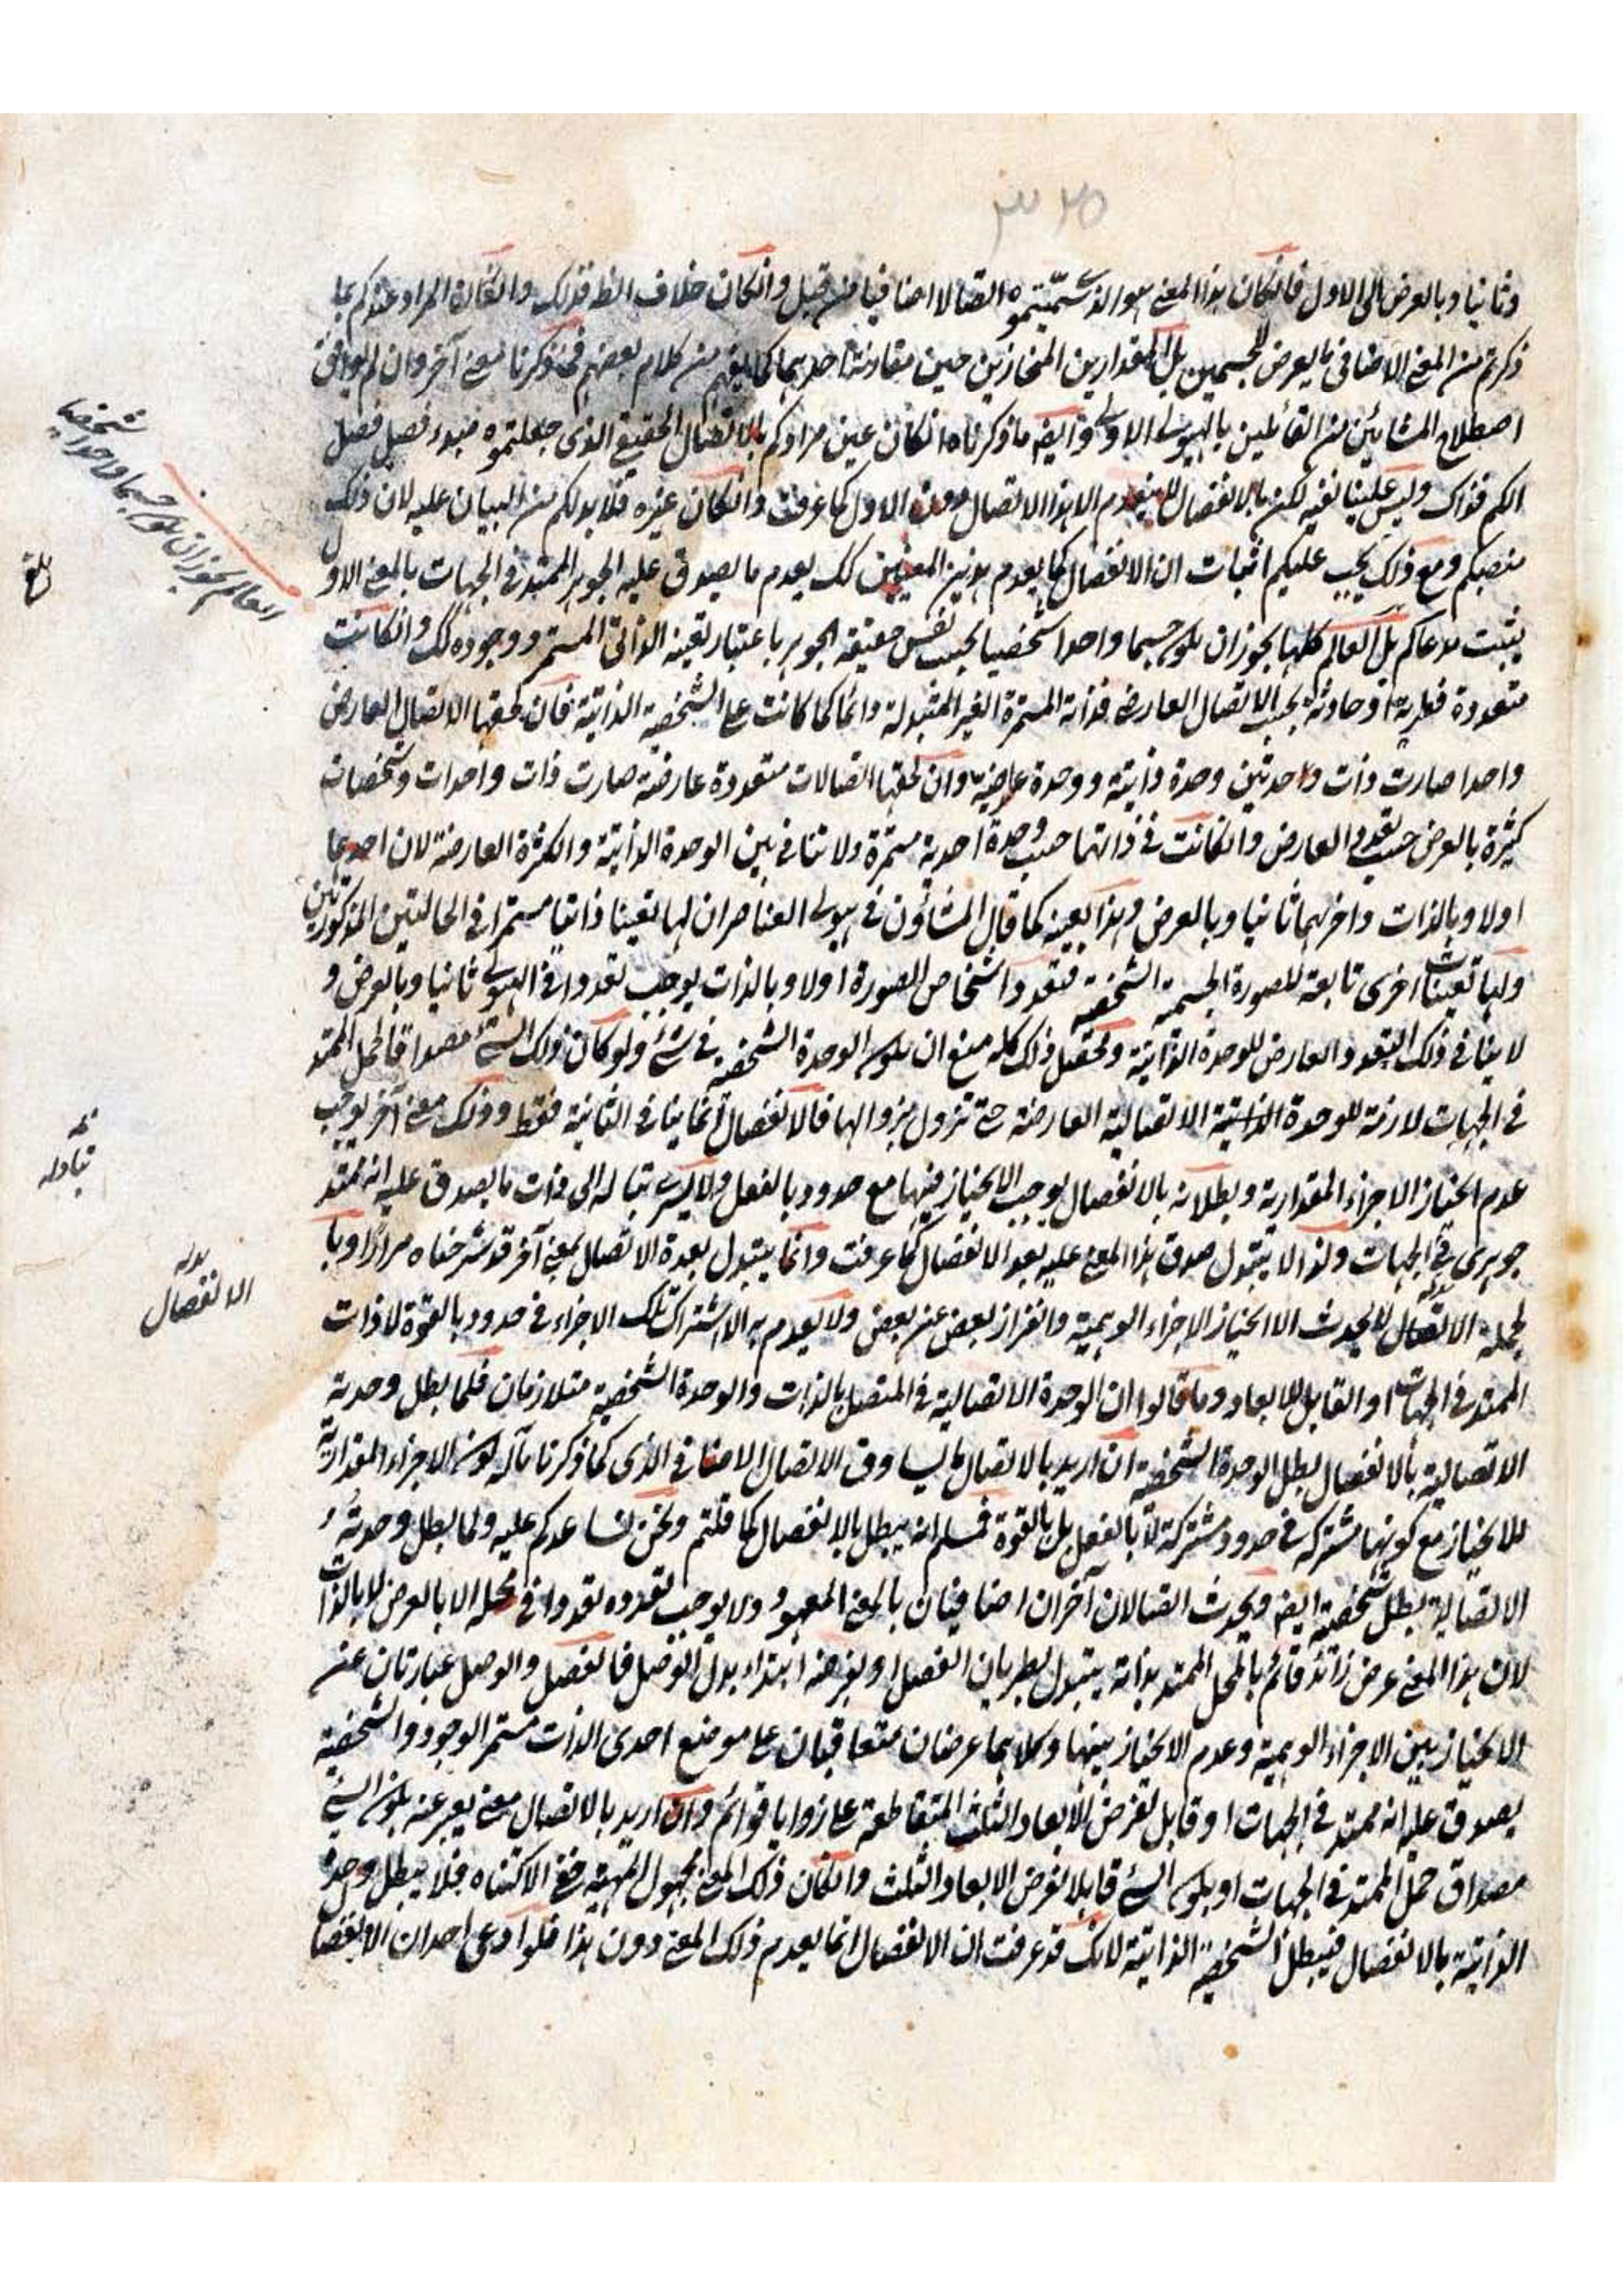 ٣٢٥
وثانيا وبالعرض الى الاول فانكان هذا المعنى هو الذى سميتموه اتصالا اضافيا من قبل وانكان خلاف الظ فذلك وانكان المراد عندكم بما
ذكرتم من المعنى الاضافى ما يعرض للجسمين بل المقدارين المنحازين حين مقارنة احدهما كما يفهم من كلام بعضهم فمذكرنا معنى آخر وان لم يوافق
اصطلاح المشائين من القائلين بالهيولى الاولى وايضه ما ذكرناه انكان عين مرادكم بالاتصال الحقيقى الذى جعلتموه مبدء فصيل فصل
الكم فذاك وليس علينا نفيه لكن بالانفصال لا ينعدم الا هذا الاتصال دون الاول كما عرفت وانكان غيره فلا بد لكم من البيان عليه لان ذلك
منصبكم ومع ذلك يجب عليكم اثبات ان الانفصال كما يعدم هذين المعنيين كك يعدم ما يصدق عليه الجوهر الممتد فى الجهات بالمعنى الاول
يثبت مدعاكم بل العالم كلها يجوز ان يكون جسما واحدا شخصيا بحسب نفس حقيقة الجوهر باعتبار تعينه الذاتى المستمر ووجوده كك وانكانت
متعددة فطرية او حادثة بحسب الاتصال العارض فذاته المستمرة الغير المتبدلة دائما كما كانت على الشخصية الذاتية فان لحقها الاتصال العارض
واحدا صارت ذات واحدتين وحدة ذاتية ووحدة عارضية وان لحقها اتصالات متعددة عارضة صارت ذات واحدات وشخصات
كثيرة بالعرض حسب تعدد العارض وانكانت فى ذاتها حسب وحدة احدية مستمرة ولا تنافى بين الوحدة الذاتية والكثرة العارضة لان احديهما
اولا وبالذات واخريهما ثانيا وبالعرض وهذا بعينه كما قال المشاؤن فى هيولى العناصر ان لها تعينا ذاتيا مستمرا فى الحالتين المذكورتين
ولها تعينات اخرى تابعة للصورة الجسمية الشخصية فتعدد اشخاص الصورة اولا وبالذات يوجب تعددا فى الهيولى ثانيا وبالعرض و
لا ينافى ذلك التعدد العارض للوحدة الذاتية وتحصل ذلك كله منع ان يكون الوحدة الشخصية فى شئ ولو كان ذلك الشئ مصداقا لحمل الممتد
فى الجهات لازمة للوحدة الذاتية الاتصالية العارضة حتى تزول بزوالها فالانفصال انما ينافى الثانية فقط وذلك معنى آخر يوجب
عدم انحياز الاجزاء المقدارية وبطلانه بالانفصال يوجب الانحياز فيها مع حدود بالفعل ولا يسرى بتباله الى ذات ما يصدق عليه انه ممتد
جوهرى فى الجهات ولذا لا يتبدل صدق هذا المعنى عليه بعد الانفصال كما عرفت وانما يتبدل بعدة الاتصال بمعنى آخر قد شرحناه مرارا وبا
لجملة الاتصال لا يحدث الا انحياز الاجزاء الوهمية وانفراز بعض عن بعض ولا يعدم به الا اشتراك تلك الاجزاء فى حدود بالقوة لا ذات
الممتد فى الجهات او القابل للابعاد وما قالوا ان الوحدة الاتصالية فى المتصل بالذات والوحدة الشخصية متلازمان فلما بطل وحدته
الاتصالية بالانفصال بطل الوحدة الشخصية ان اريد بالاتصال ما يساوق الاتصال الاضافى الذى كما ذكرنا مآله كون الاجزاء المقدارية
للانحياز مع كونها مشتركة فى حدود مشتركة لا بالفعل بل بالقوة فمسلم انه يبطل بالانفصال كما قلتم ونحن نساعدكم عليه ولما بطل وحدته
الاتصالية بطل شخصيته ايضه ويحدث اتصالان آخران اضافيان بالمعنى المعهود ولا يوجب تعدده تعددا فى محله الا بالعرض لا بالذات
لان هذا المعنى عرض زائد قائم بالمحل الممتد بذاته يتبدل بطريان الفصل او بفرضه ابتداء بدل الوصل فالفصل والوصل عبارتان عن
الانحياز بين الاجزاء الوهمية وعدم الانحياز بينها وكلاهما عرضان متعاقبان على موضع احدى الذات مستمر الوجود والشخصية
يصدق عليه انه ممتد فى الجهات او قابل لفرض الابعاد الثلث المتقاطعة على زوايا قوائم وان اريد بالاتصال معنى يعبر عنه بكون الشئ
مصداق حمل الممتد فى الجهات او بكون الشئ قابلا لفرض الابعاد الثلث وانكان ذلك المعنى مجهول المهية خفى الاكتناه فلا يبطل وحدة
الذاتية بالانفصال فيبطل الشخصية الذاتية لانك قد عرفت ان الانفصال انما يعدم ذلك المعنى دون هذا فلو ادعى احد ان الانفصا
العالم يجوز ان يكون جسما واحدا شخصيا
بلغ
تبادله
بدله
الانفصال